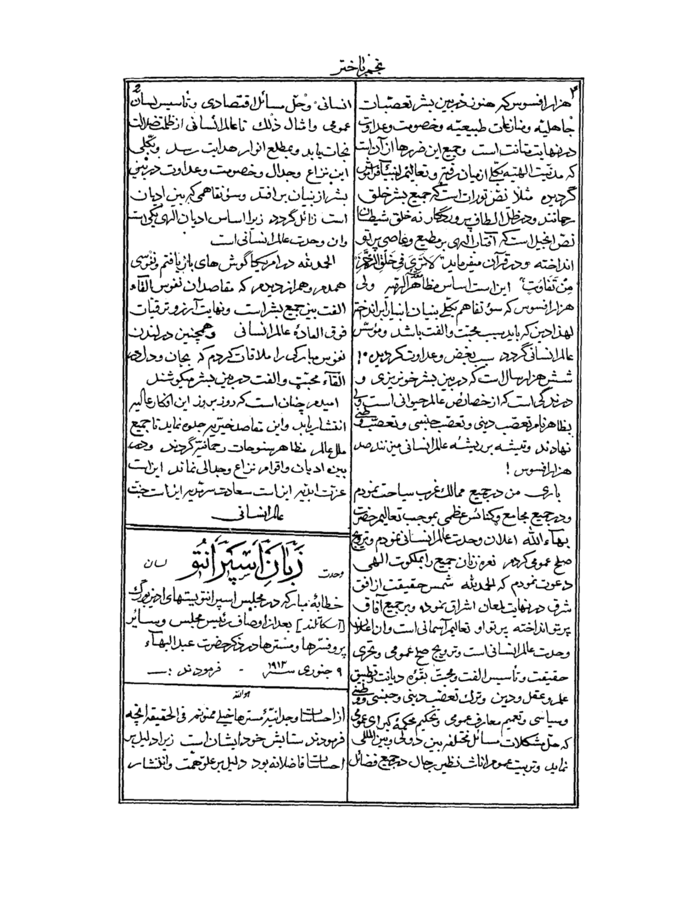 نجم باختر
۳
هزار افسوس که هنوز در بین بشر تعصّبات
جاهلیّه و منازعات طبیعیّه و خصومت و عداوت
در نهایت متانت است و جمیع این ضررها از آن است
که مدنیّت الهیّه بکلّی از میان رفته و تعالیم انبیا فراموش
گردیده مثلاً نصّ تورات است که جمیع بشر خلق
رحمانند و در ظلّ الطاف پروردگار نه خلق شیطان
نصّ انجیل است که آفتاب الهی بر مطیع و عاصی پرتو
انداخته و در قرآن میفرماید لا تری فی خلق الرّحمن
من تفاوت این است اساس مظاهر الهیّه ولی
هزار افسوس که سوء تفاهم بکلّی بنیان انبیا را برانداخته
لهذا دین که باید سبب محبّت و الفت باشد و مؤسّس
عالم انسانی گردد سبب بغض و عداوت گردیده!
شش هزار سال است که در بین بشر خونریزی و
درندگی است که از خصائص عالم حیوانی است ولی
بظاهر نام تعصّب دینی و تعصّب جنسی و تعصّب وطنی
نهادند و تیشه بر ریشه عالم انسانی میزنند صد
هزار افسوس!
باری من در جمیع ممالک غرب سیاحت نمودم
و در جمیع مجامع و کنائس عظمی بموجب تعالیم حضرت
بهاءالله اعلان وحدت عالم انسانی نمودم و ترویج
صلح عمومی کردم نعره زنان جمیع را بملکوت الهی
دعوت نمودم که الحمدلله شمس حقیقت از افق
شرق در نهایت لمعان اشراق نموده و بر جمیع آفاق
پرتو انداخته پرتو او تعالیم آسمانی است و آن اعلان
وحدت عالم انسانی است و ترویج صلح عمومی و تحرّی
حقیقت و تأسیس الفت و محبّت بقوّه دیانت و تطبیق
علم و عقل و دین و ترک تعصّب دینی و جنسی و وطنی
و سیاسی و تعمیم معارف عمومی و تحکیم محکمه کبرای عمومی
که حلّ مشکلات مسائل مختلفه بین دولی و بین المللی
نماید و تربیت عموم اناث نظیر رجال در جمیع فضائل
2
انسانی و حلّ مسائل اقتصادی و تأسیس لسان
عمومی و امثال ذلک تا عالم انسانی از ظلمت ضلالت
نجات یابد و بمطلع انوار هدایت رسد و بکلّی
این نزاع و جدال و خصومت و عداوت در بین
بشر از بنیان برافتد و سوء تفاهمی که بین ادیان
است زائل گردد زیرا اساس ادیان الهی یکی است
و آن وحدت عالم انسانی است
الحمدلله در امریکا گوش های باز یافتم و نفوسی
همدم و همراز دیدم که مقاصدشان نفوس القاء
الفت بین جمیع بشر است و نهایت آرزو ترقّیات
فوق العاده عالم انسانی و همچنین در لندن
نفوس مبارکی را ملاقات کردم که بجان و دل در
القاء محبّت و الفت در بین بشر میکوشند
امیدم چنان است که روز بروز این افکار عالیه
انتشار یابد و این مقاصد خیریّه جلوه نماید تا جمیع
ملل عالم مظاهر سنوحات رحمانیّه گردند و در
بین ادیان و اقوام نزاع و جدالی نماند این است
عزّت ابدیّه این است سعادت سرمدیّه این است جنّت
عالم انسانی
وحدت زبان اسپرانتو لسان
خطابه مبارکه در مجلس اسپرانتویستهای ادنبورگ
[اسکاتلند] بعد از اوصاف رئیس مجلس و سایر
پروفسرها و مسترها در ذکر حضرت عبدالبهاء
۹ جنوری سنه ۱۹۱۳ - فرمودند :—
هوالله
از احساسات وجدانیّه مسترها خیلی ممنونم فی الحقیقه آنچه
فرمودند ستایش خودشان است زیرا دلیل بر
احساسات فاضلانه بود دلیل بر علوّ همّت و انتشار